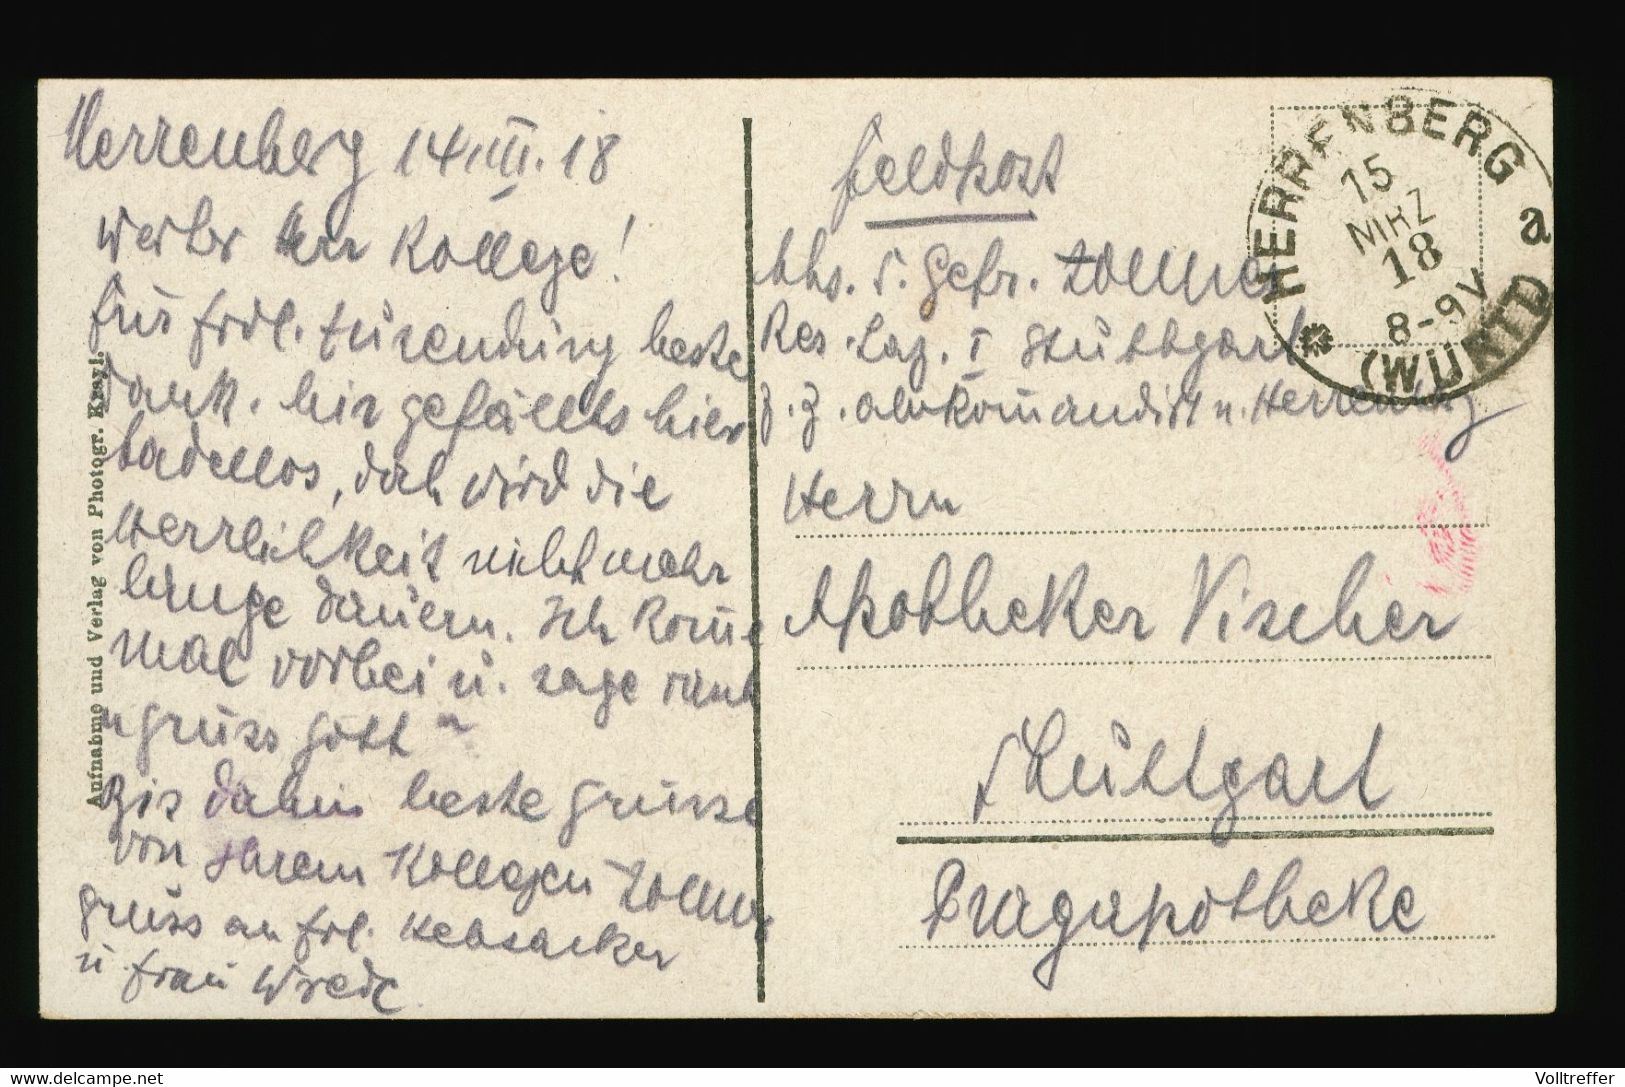 Herrenberg 14.III.18
Werter Herr Kollege!
für frdl. Zusendung beste
Dank. hir gefällts hier
tadellos, doch wird die
Herrlichkeit nicht mehr
lange dauern. Ich komme
mal vorbei u. sage rasch
"Grüss Gott"
Bis dahin beste Grüsse
von Ihrem Kollegen Zoller
Gruss an Frl. Hebsacker
u. Frau Wrede
Aufnahme und Verlag von Photogr. Krayl.
Feldpost
Abs. S. Gefr. Zoller
Res. Laz. I Stuttgart
z. Z. abkommandiert n. Herrenberg
Herrn
Apotheker Vischer
Stuttgart
Pragapotheke
HERRENBERG a
15
MRZ
18
8-9V
(WÜRTT)
Volltreffer
delcampe.net